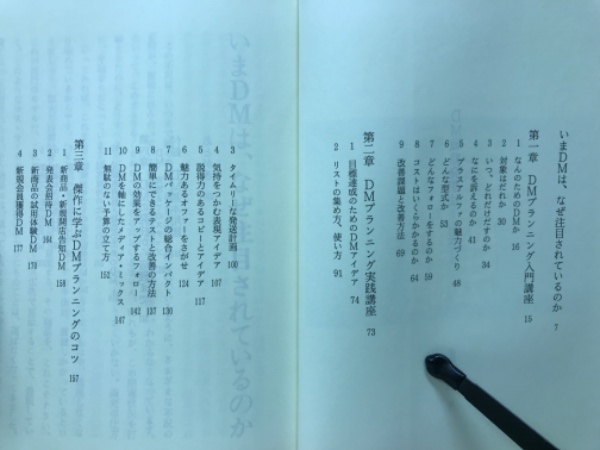 いまDMは、なぜ注目されているのか 7
第一章 DMプランニング入門講座 15
1 なんのためのDMか 16
2 対象はだれか 30
3 いつ、どれだけだすのか 34
4 なにを訴えるのか 41
5 プラスアルファの魅力づくり 48
6 どんな型式か 53
7 どんなフォローをするのか 59
8 コストはいくらかかるのか 64
9 改善課題と改善方法 69
第二章 DMプランニング実践講座 73
1 目標達成のためのDMアイデア 74
2 リストの集め方、使い方 91
3 タイムリーな発送計画 100
4 気持をつかむ表現アイデア 107
5 説得力のあるコピーとアイデア 117
6 魅力あるオファーをさがせ 124
7 DMパッケージの総合インパクト 130
8 簡単にできるテストと改善の方法 137
9 DMの効果をアップするフォロー 142
10 DMを軸にしたメディア・ミックス 147
11 無駄のない予算の立て方 152
第三章 傑作に学ぶDMプランニングのコツ 157
1 新商品・新規開店告知DM 158
2 発表会招待DM 164
3 新商品の試用体験DM 170
4 新規会員獲得DM 177
いまDMは、なぜ注目されているのか